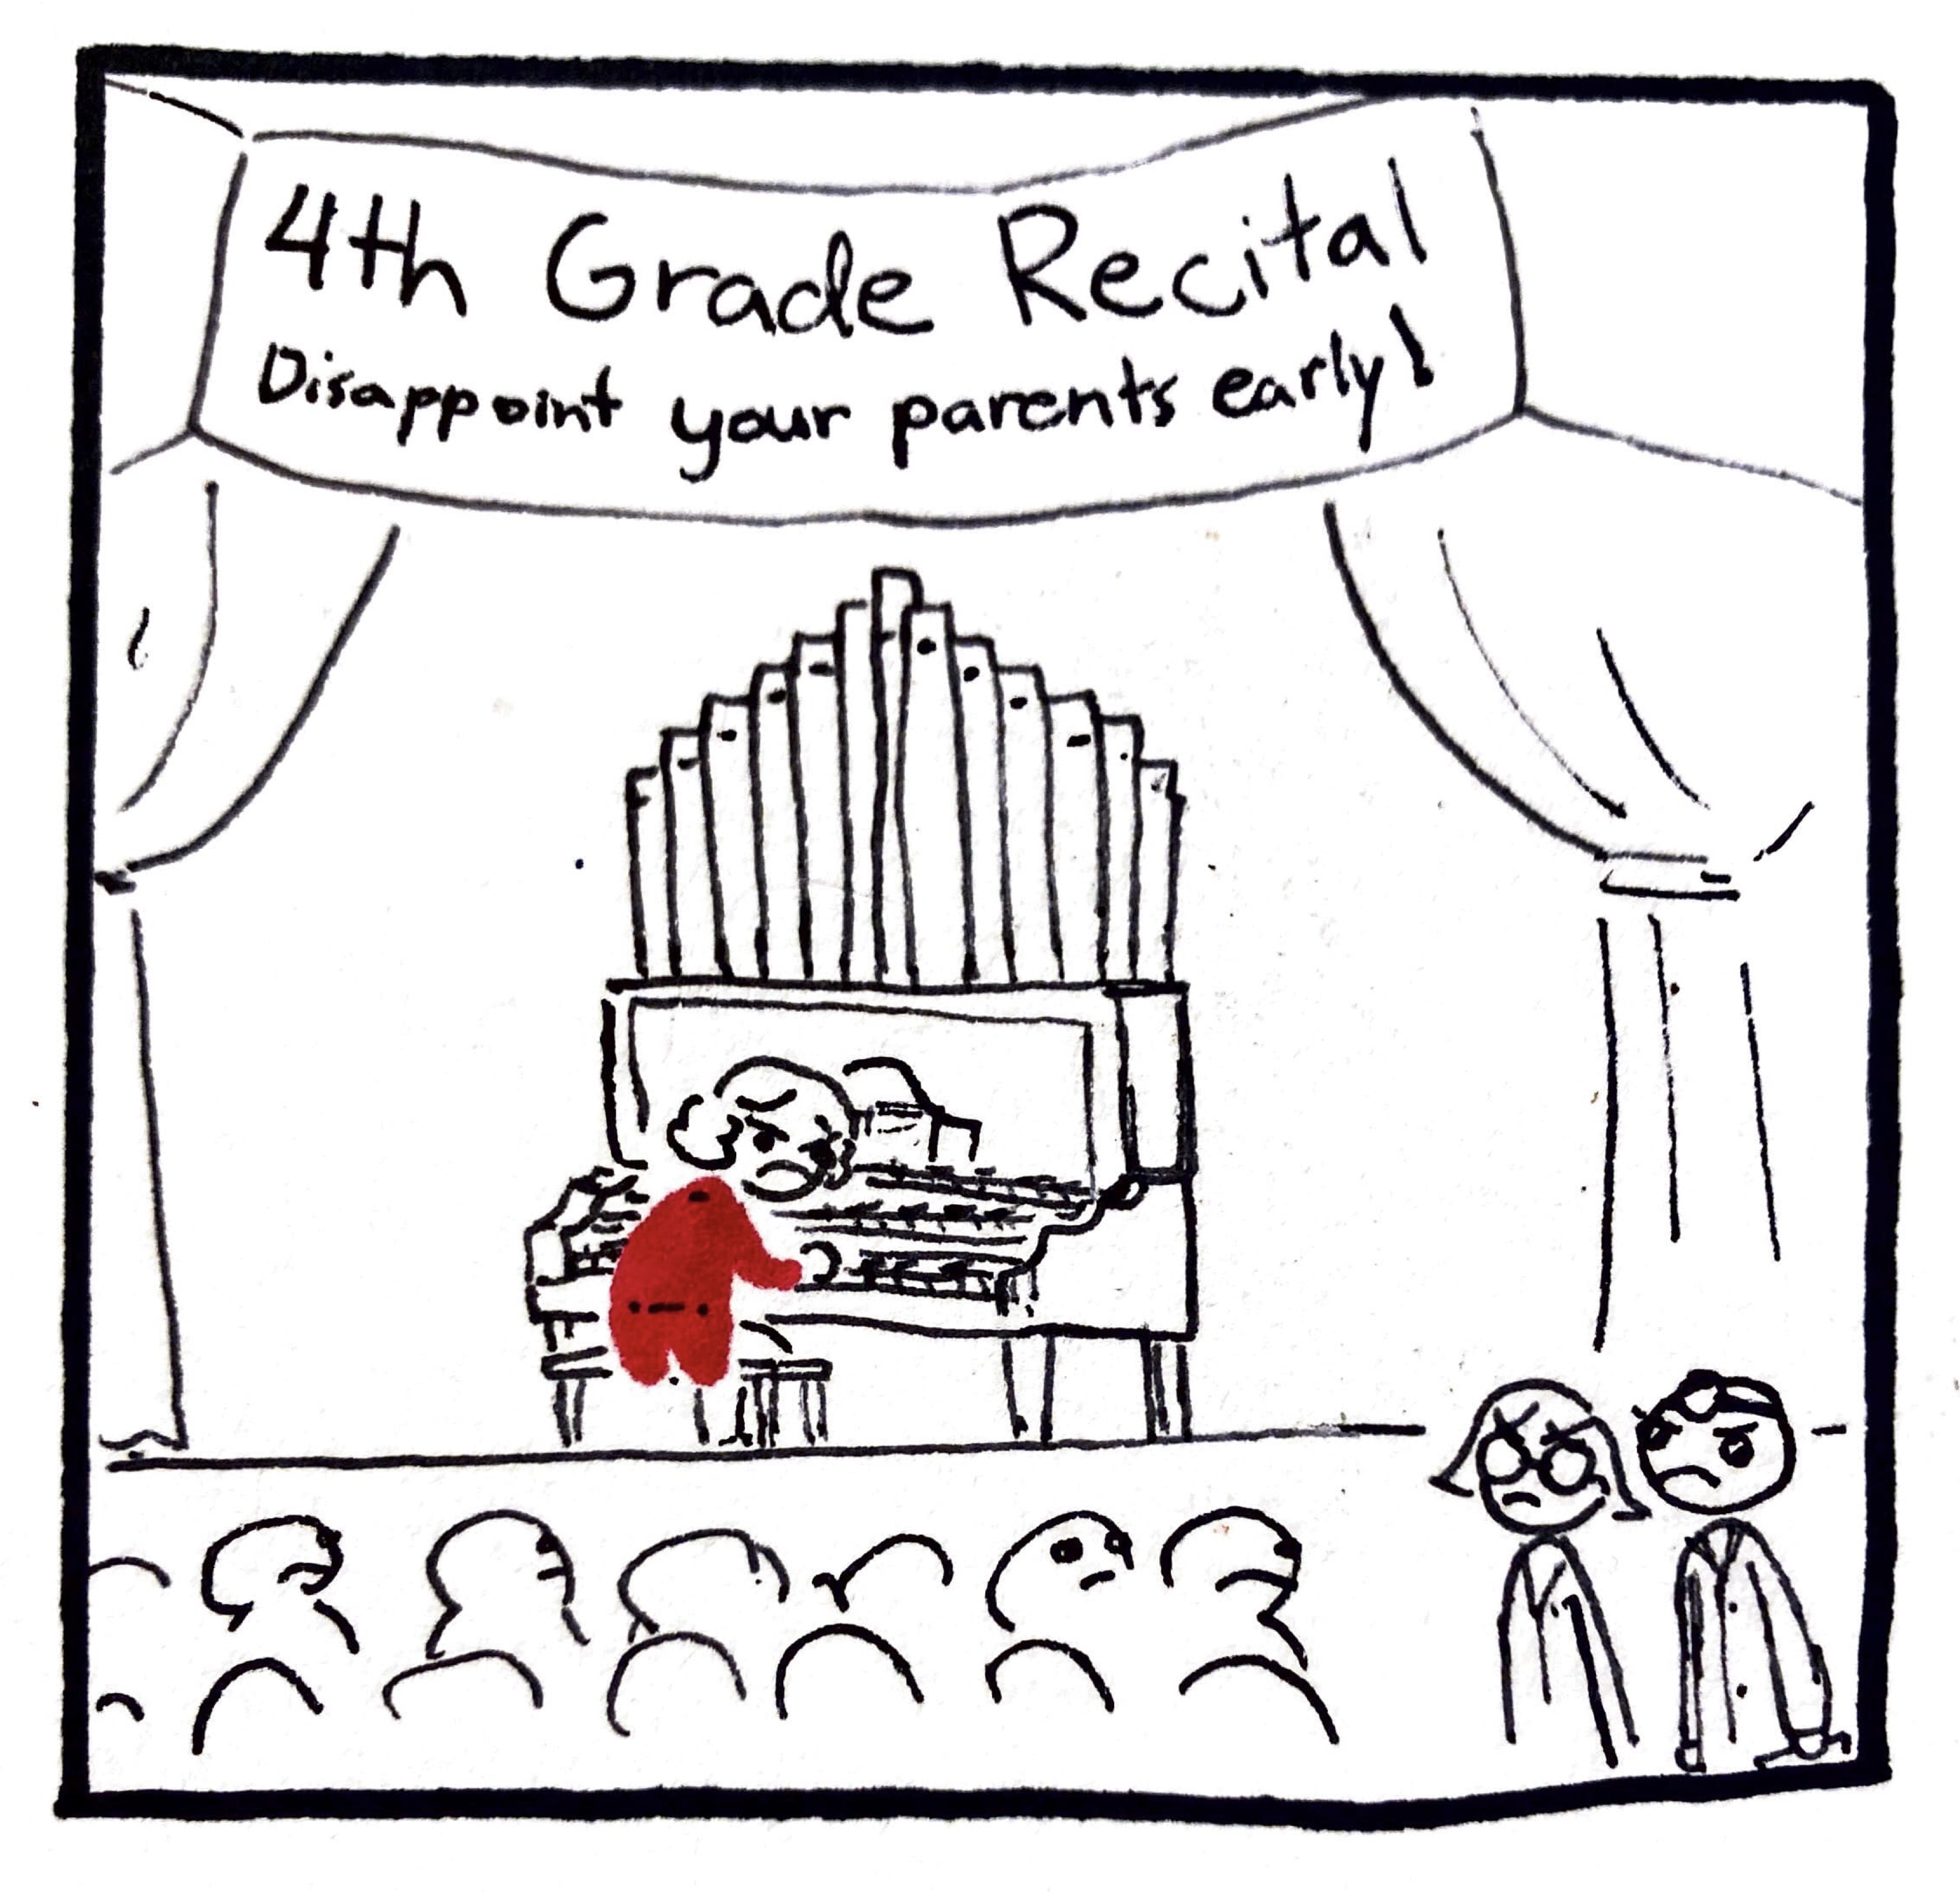 4th Grade Recital
Disappoint your parents early!